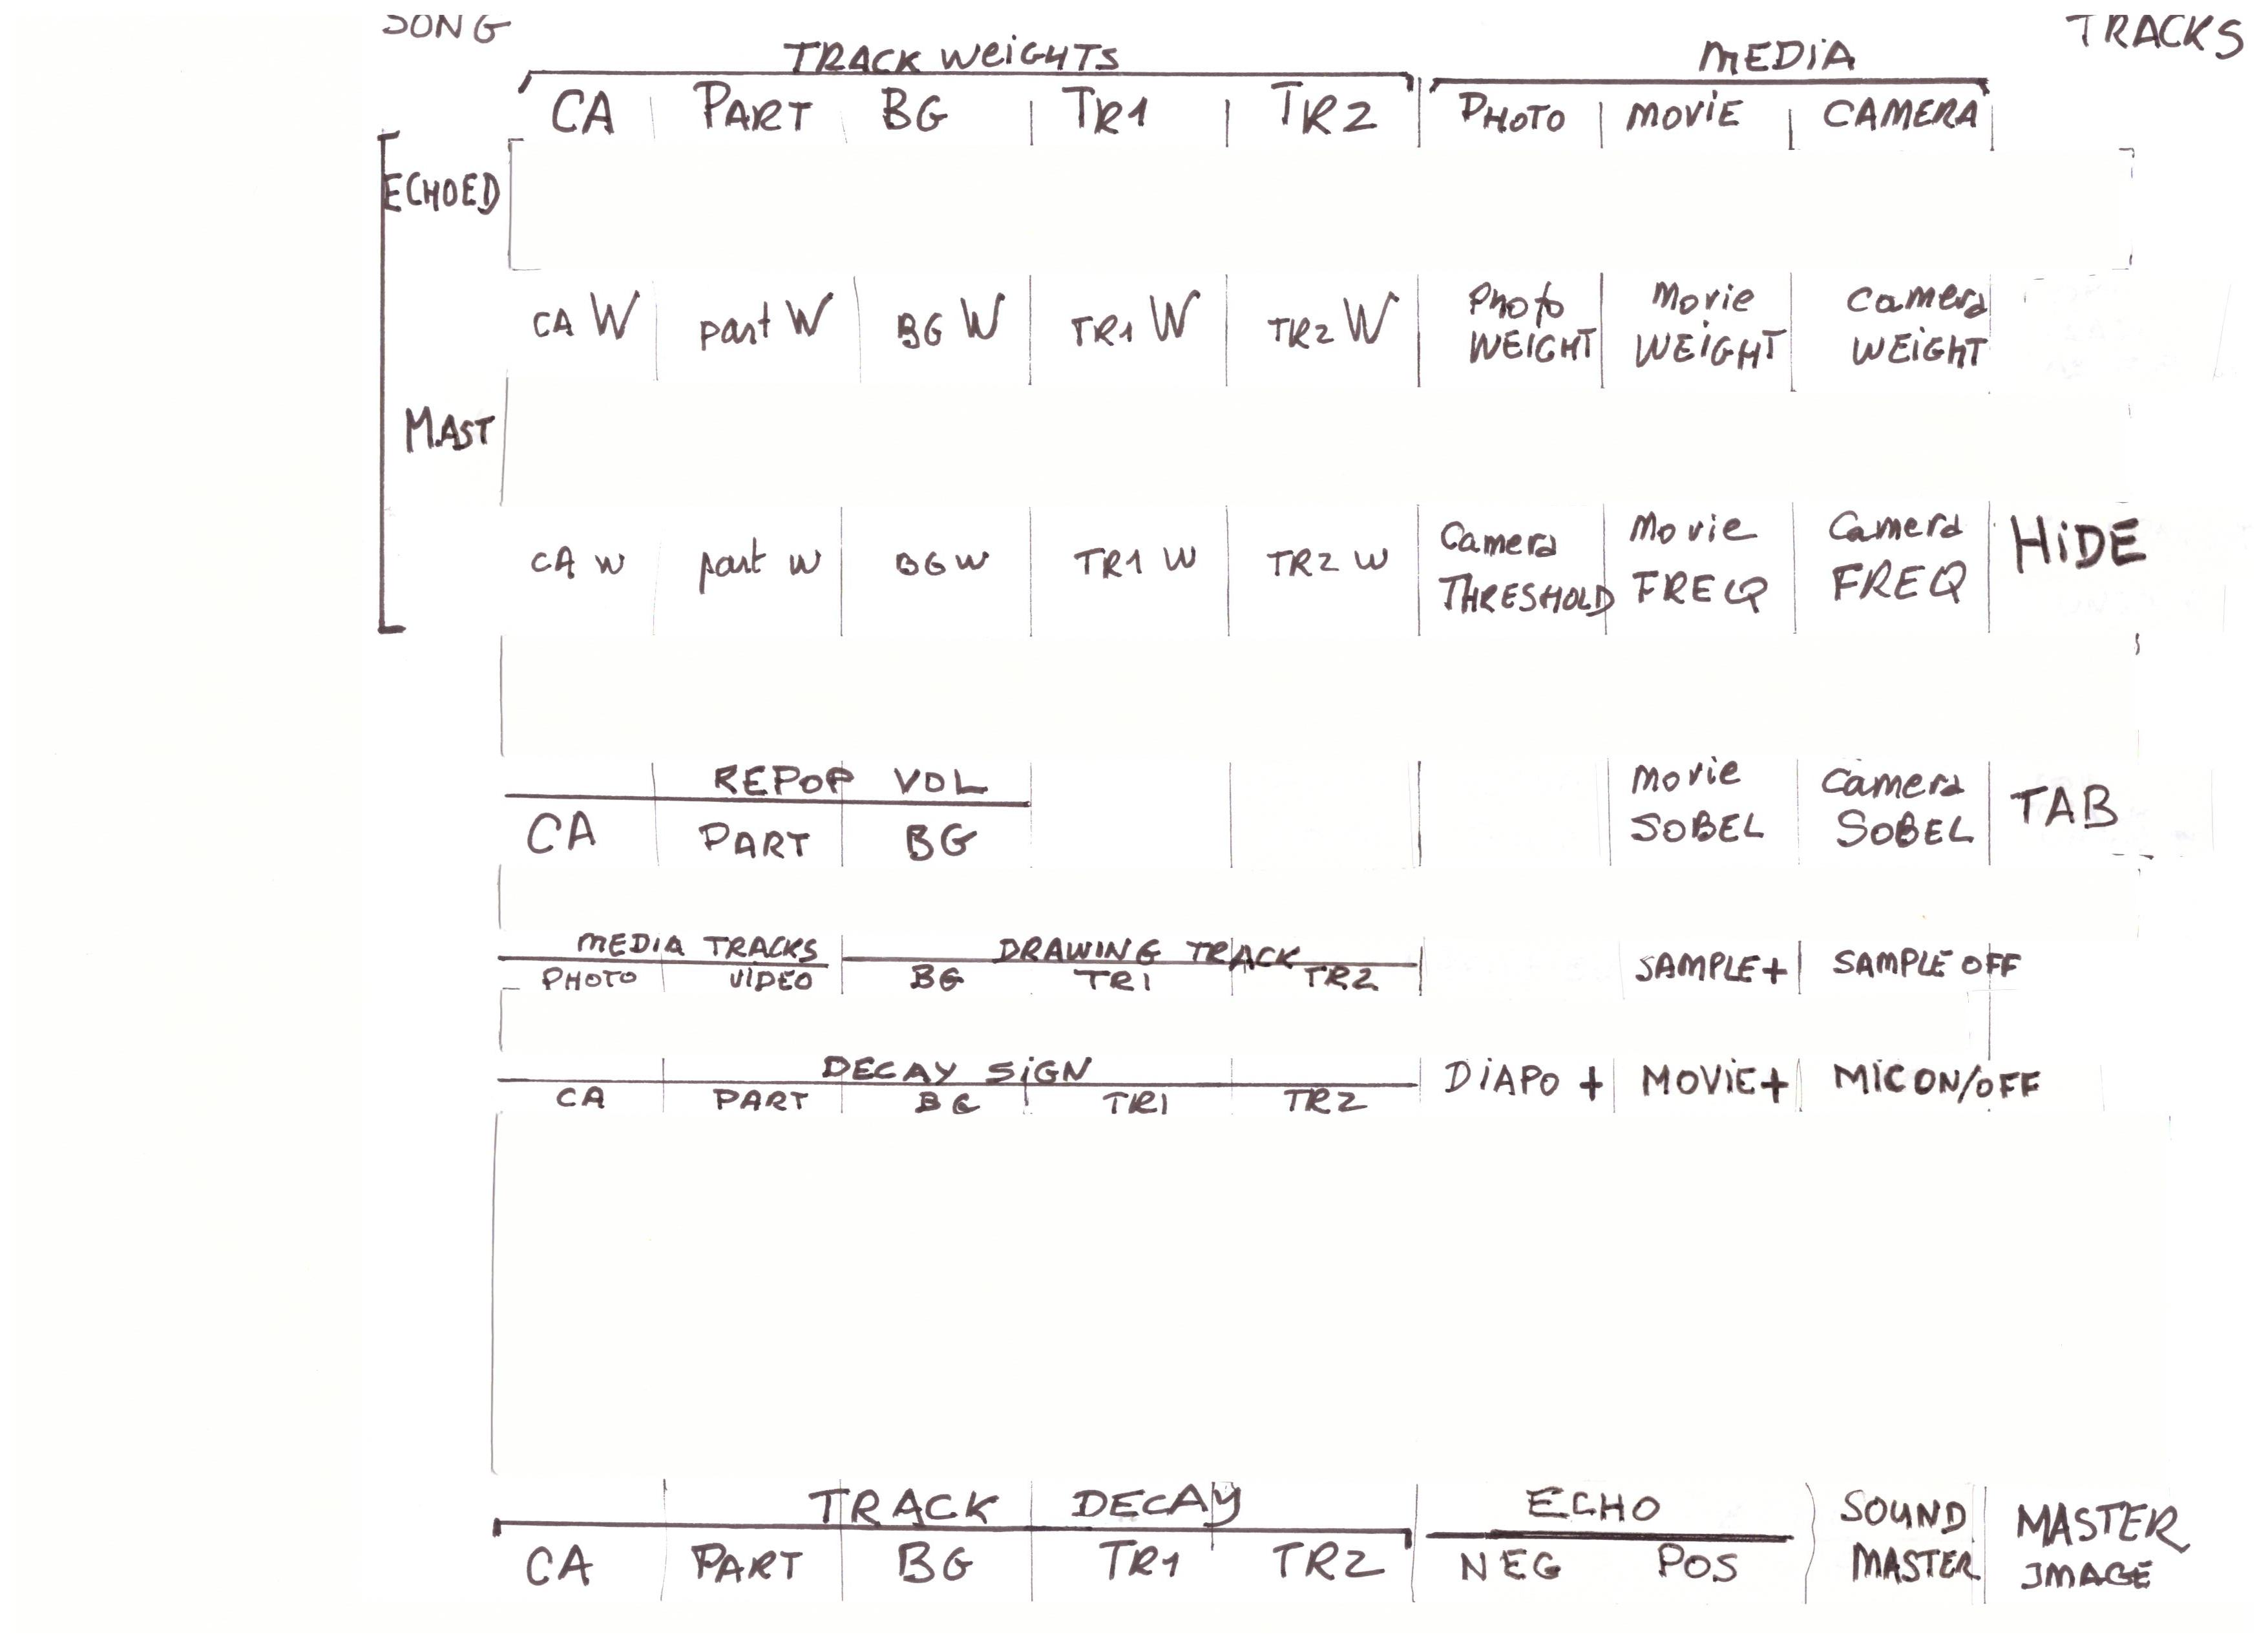 SONG
TRACKS
TRACK WEIGHTS
MEDIA
CA PART BG TR1 TR2 PHOTO MOVIE CAMERA
ECHOED
CA W part W BG W TR1 W TR2 W Photo WEIGHT Movie WEIGHT Camera WEIGHT
MAST
CA W part W BG W TR1 W TR2 W Camera THRESHOLD Movie FREQ Camera FREQ HIDE
REPOP VOL
CA PART BG Movie SOBEL Camera SOBEL TAB
MEDIA TRACKS DRAWING TRACK
PHOTO VIDEO BG TR1 TR2 SAMPLE+ SAMPLE OFF
DECAY SIGN
CA PART BG TR1 TR2 DIAPO + MOVIE+ MIC ON/OFF
TRACK DECAY ECHO
CA PART BG TR1 TR2 NEG POS SOUND MASTER MASTER IMAGE